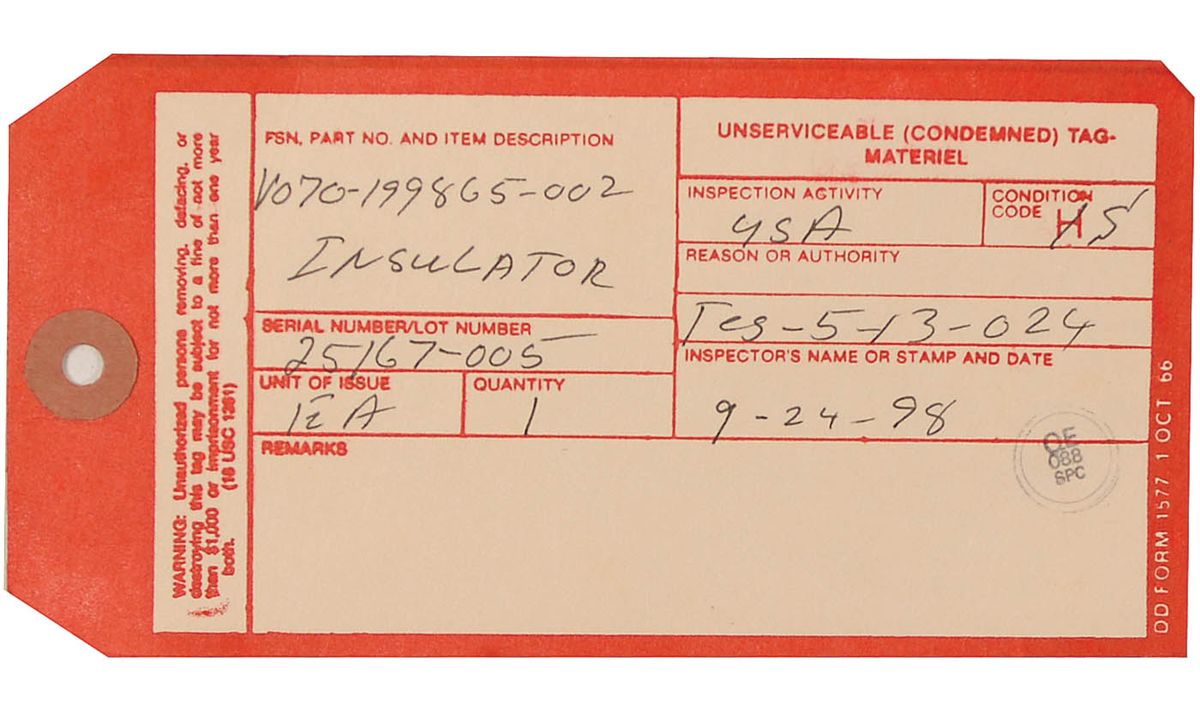 WARNING: Unauthorized persons removing, defacing, or
destroying this tag may be subject to a fine of not more
than $1,000 or imprisonment for not more than one year
both.
(18 USC 1361)
FSN, PART NO. AND ITEM DESCRIPTION
V070-199865-002
INSULATOR
SERIAL NUMBER/LOT NUMBER
25167-005
UNIT OF ISSUE
EA
QUANTITY
1
REMARKS
UNSERVICEABLE (CONDEMNED) TAG-
MATERIEL
INSPECTION ACTIVITY
USA
CONDITION
CODE H
REASON OR AUTHORITY
TCS-5-13-024
INSPECTOR'S NAME OR STAMP AND DATE
9-24-98
QE
088
SPC
DD FORM 1577 1 OCT 66